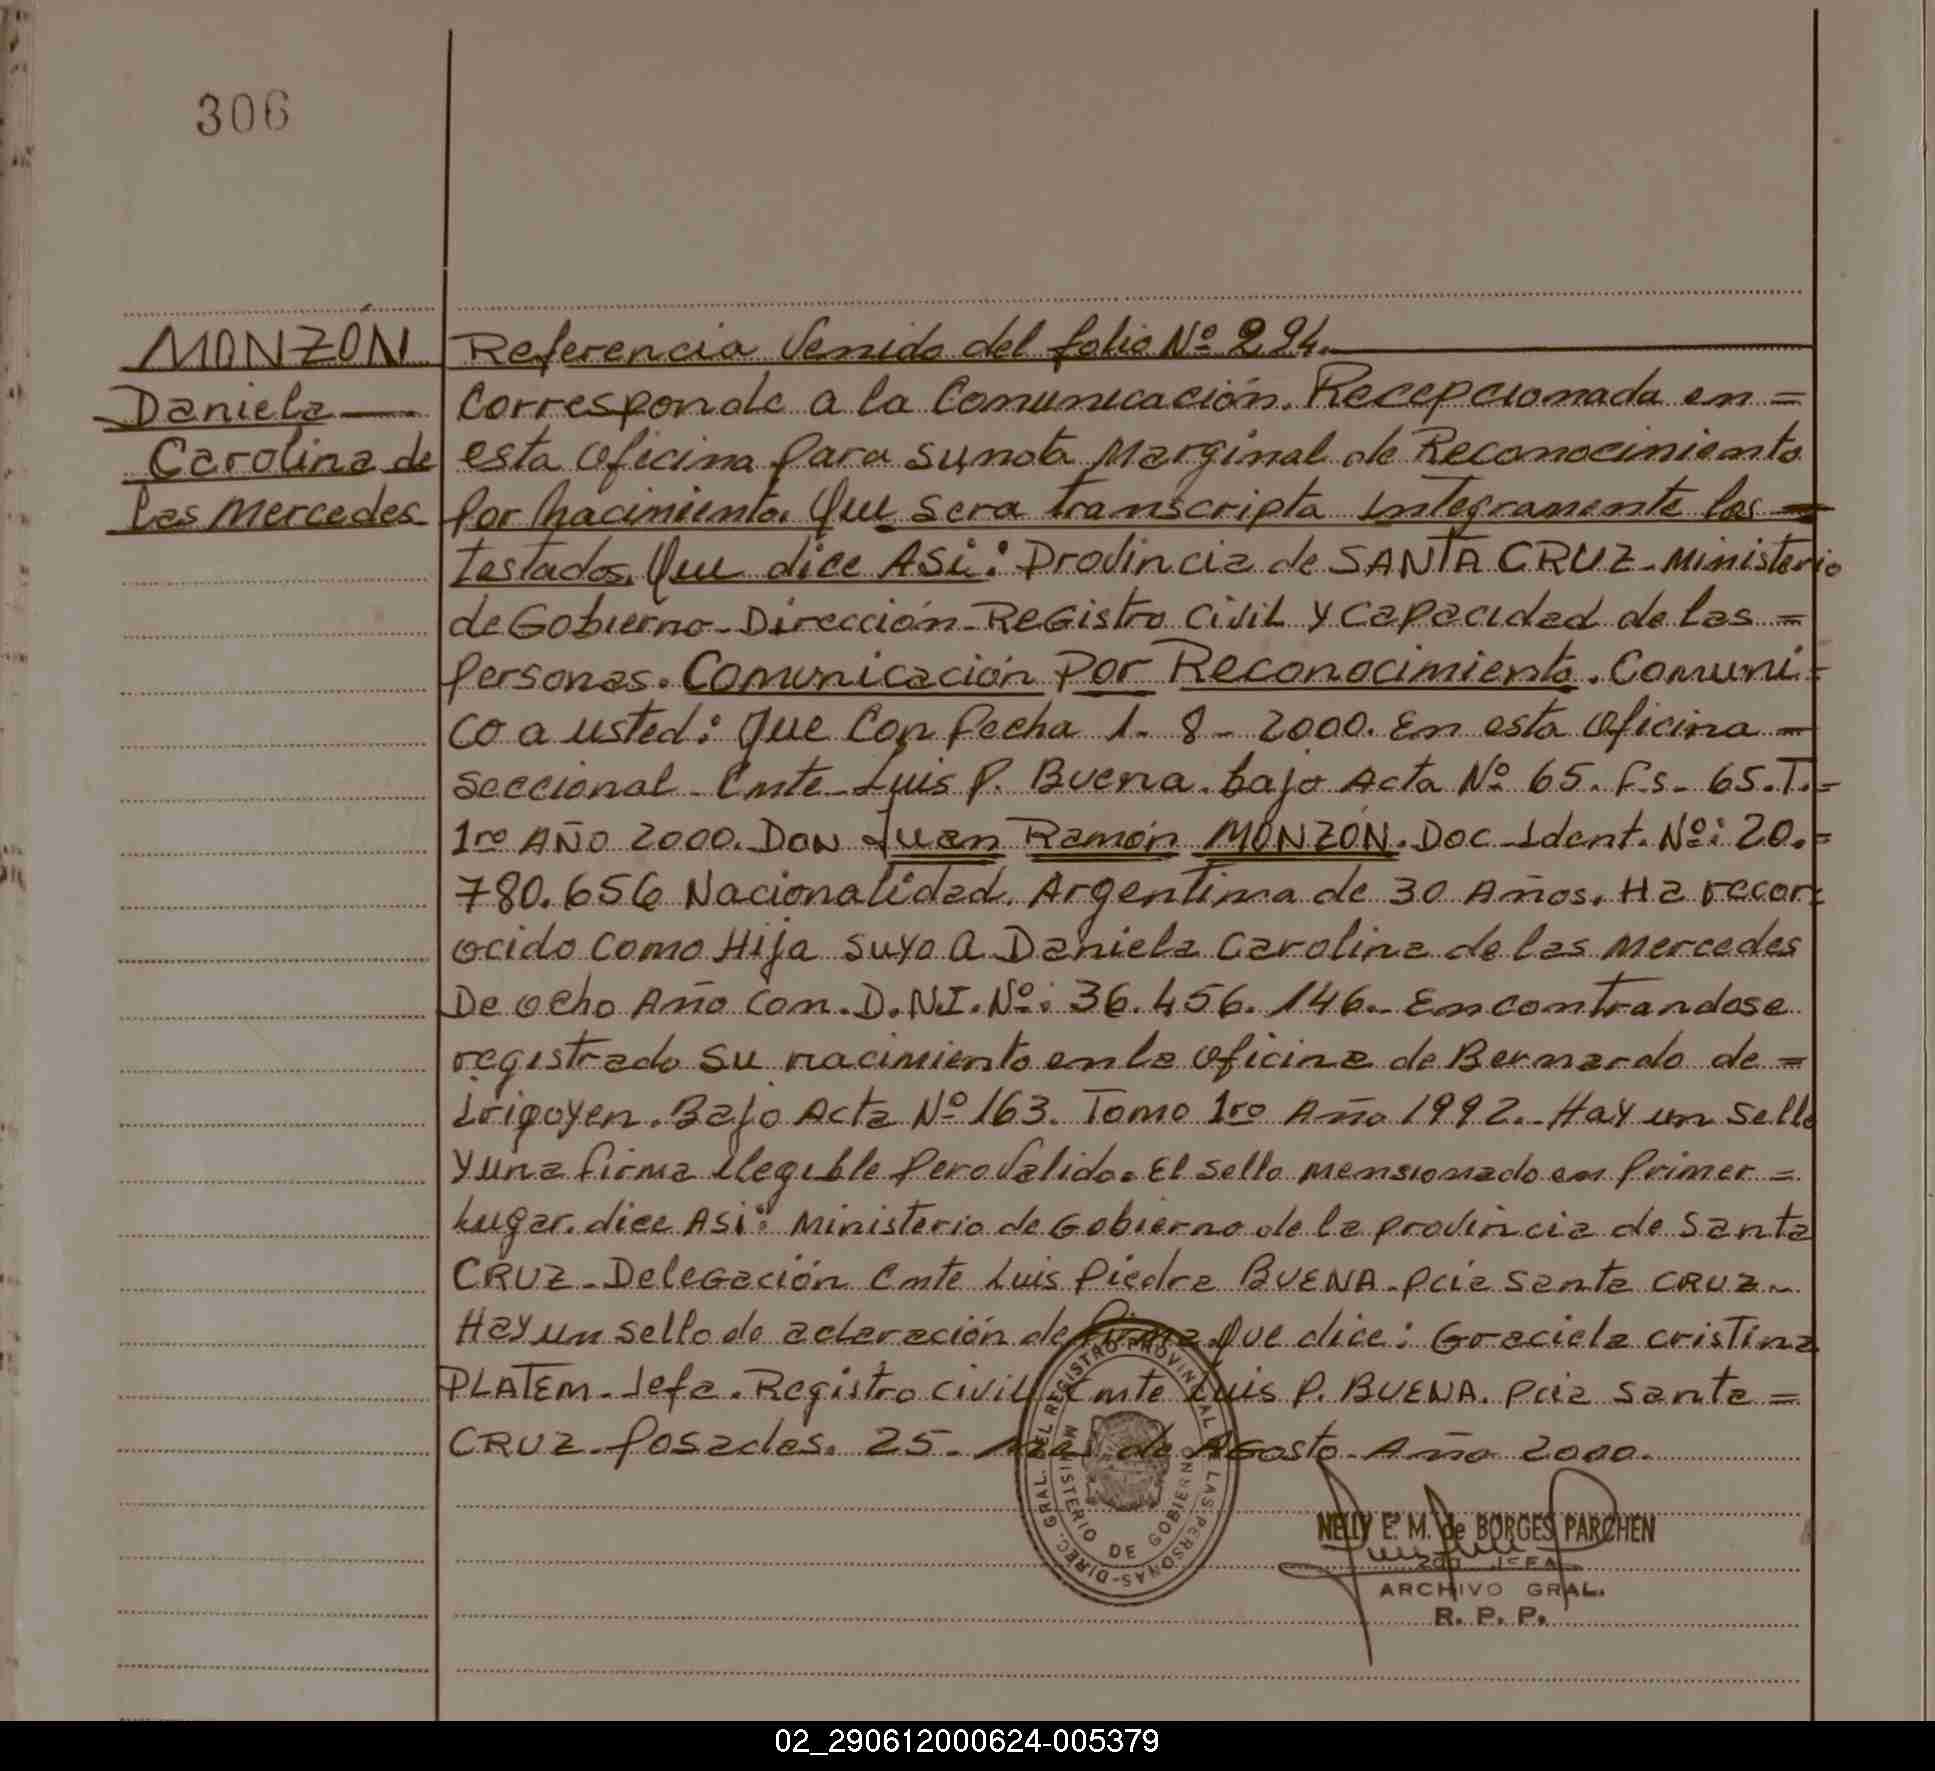 306
MONZÓN
Daniela
Carolina de
las Mercedes
Referencia Venido del folio Nº 294.
Corresponde a la Comunicación. Recepcionada en =
esta oficina para su nota Marginal de Reconocimiento
por nacimiento. Que sera transcripta integramente los =
testados. Que dice ASi: Provincia de SANTA CRUZ - Ministerio
de Gobierno - Dirección - Registro Civil y Capacidad de las =
personas. Comunicación Por Reconocimiento. Comuni =
co a usted: Que Con fecha 1 - 8 - 2000. En esta oficina =
seccional - Cmte - Luis P. Buena. bajo Acta Nº 65. fs - 65. T. =
1ro AÑO 2000. Don Juan Ramón MONZÓN. Doc - Ident. Nº: 20. =
780.656 Nacionalidad. Argentina de 30 Años. Ha recon =
ocido Como Hija suyo a Daniela Carolina de las Mercedes
De ocho Año Con. D.N.I. Nº: 36.456.146. - Encontrandose
registrado su nacimiento en la oficina de Bernardo de =
Irigoyen. Bajo Acta Nº 163. Tomo 1ro Año 1992. - Hay un sello
y una firma ilegible pero Valido. El sello mensionado en primer =
Lugar. dice ASi: Ministerio de Gobierno de la provincia de Santa
CRUZ - Delegación Cmte Luis Piedra BUENA - pcia Santa CRUZ -
Hay un sello de aclaración de firma. Que dice: Graciela cristina
PLATEM - Jefa. Registro civil Cmte Luis P. BUENA. pcia Santa =
CRUZ - Posadas. 25 - de Agosto - Año 2000.
DIREC. GRAL. DEL REGISTRO PROVINCIAL DE LAS PERSONAS
MINISTERIO DE GOBIERNO
NELLY E. M. de BORGES PARCHEN
2do JEFA
ARCHIVO GRAL.
R. P. P.
02_290612000624-005379